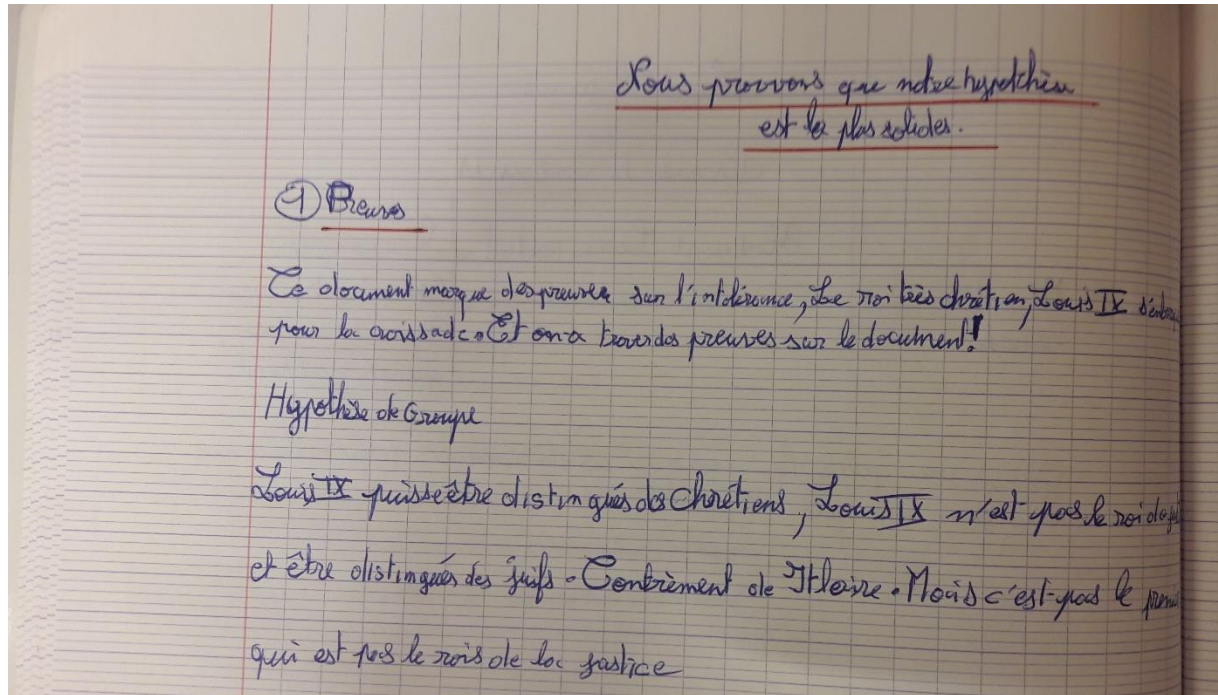 Nous prouvons que notre hypothèse
est la plus solides.
① Preuves
Ce document marque des preuves sur l'intolérance, Le roi très chrétien, Louis IX
pour la croissade. Et on a trouver des preuves sur le document!
Hypothèse de Groupe
Louis IX puisse être distingués des Chrétiens, Louis IX n'est pas le roi de
et être distingués des juifs. Contrèment de Mais c'est pas le
qui est pas le rois de la justice